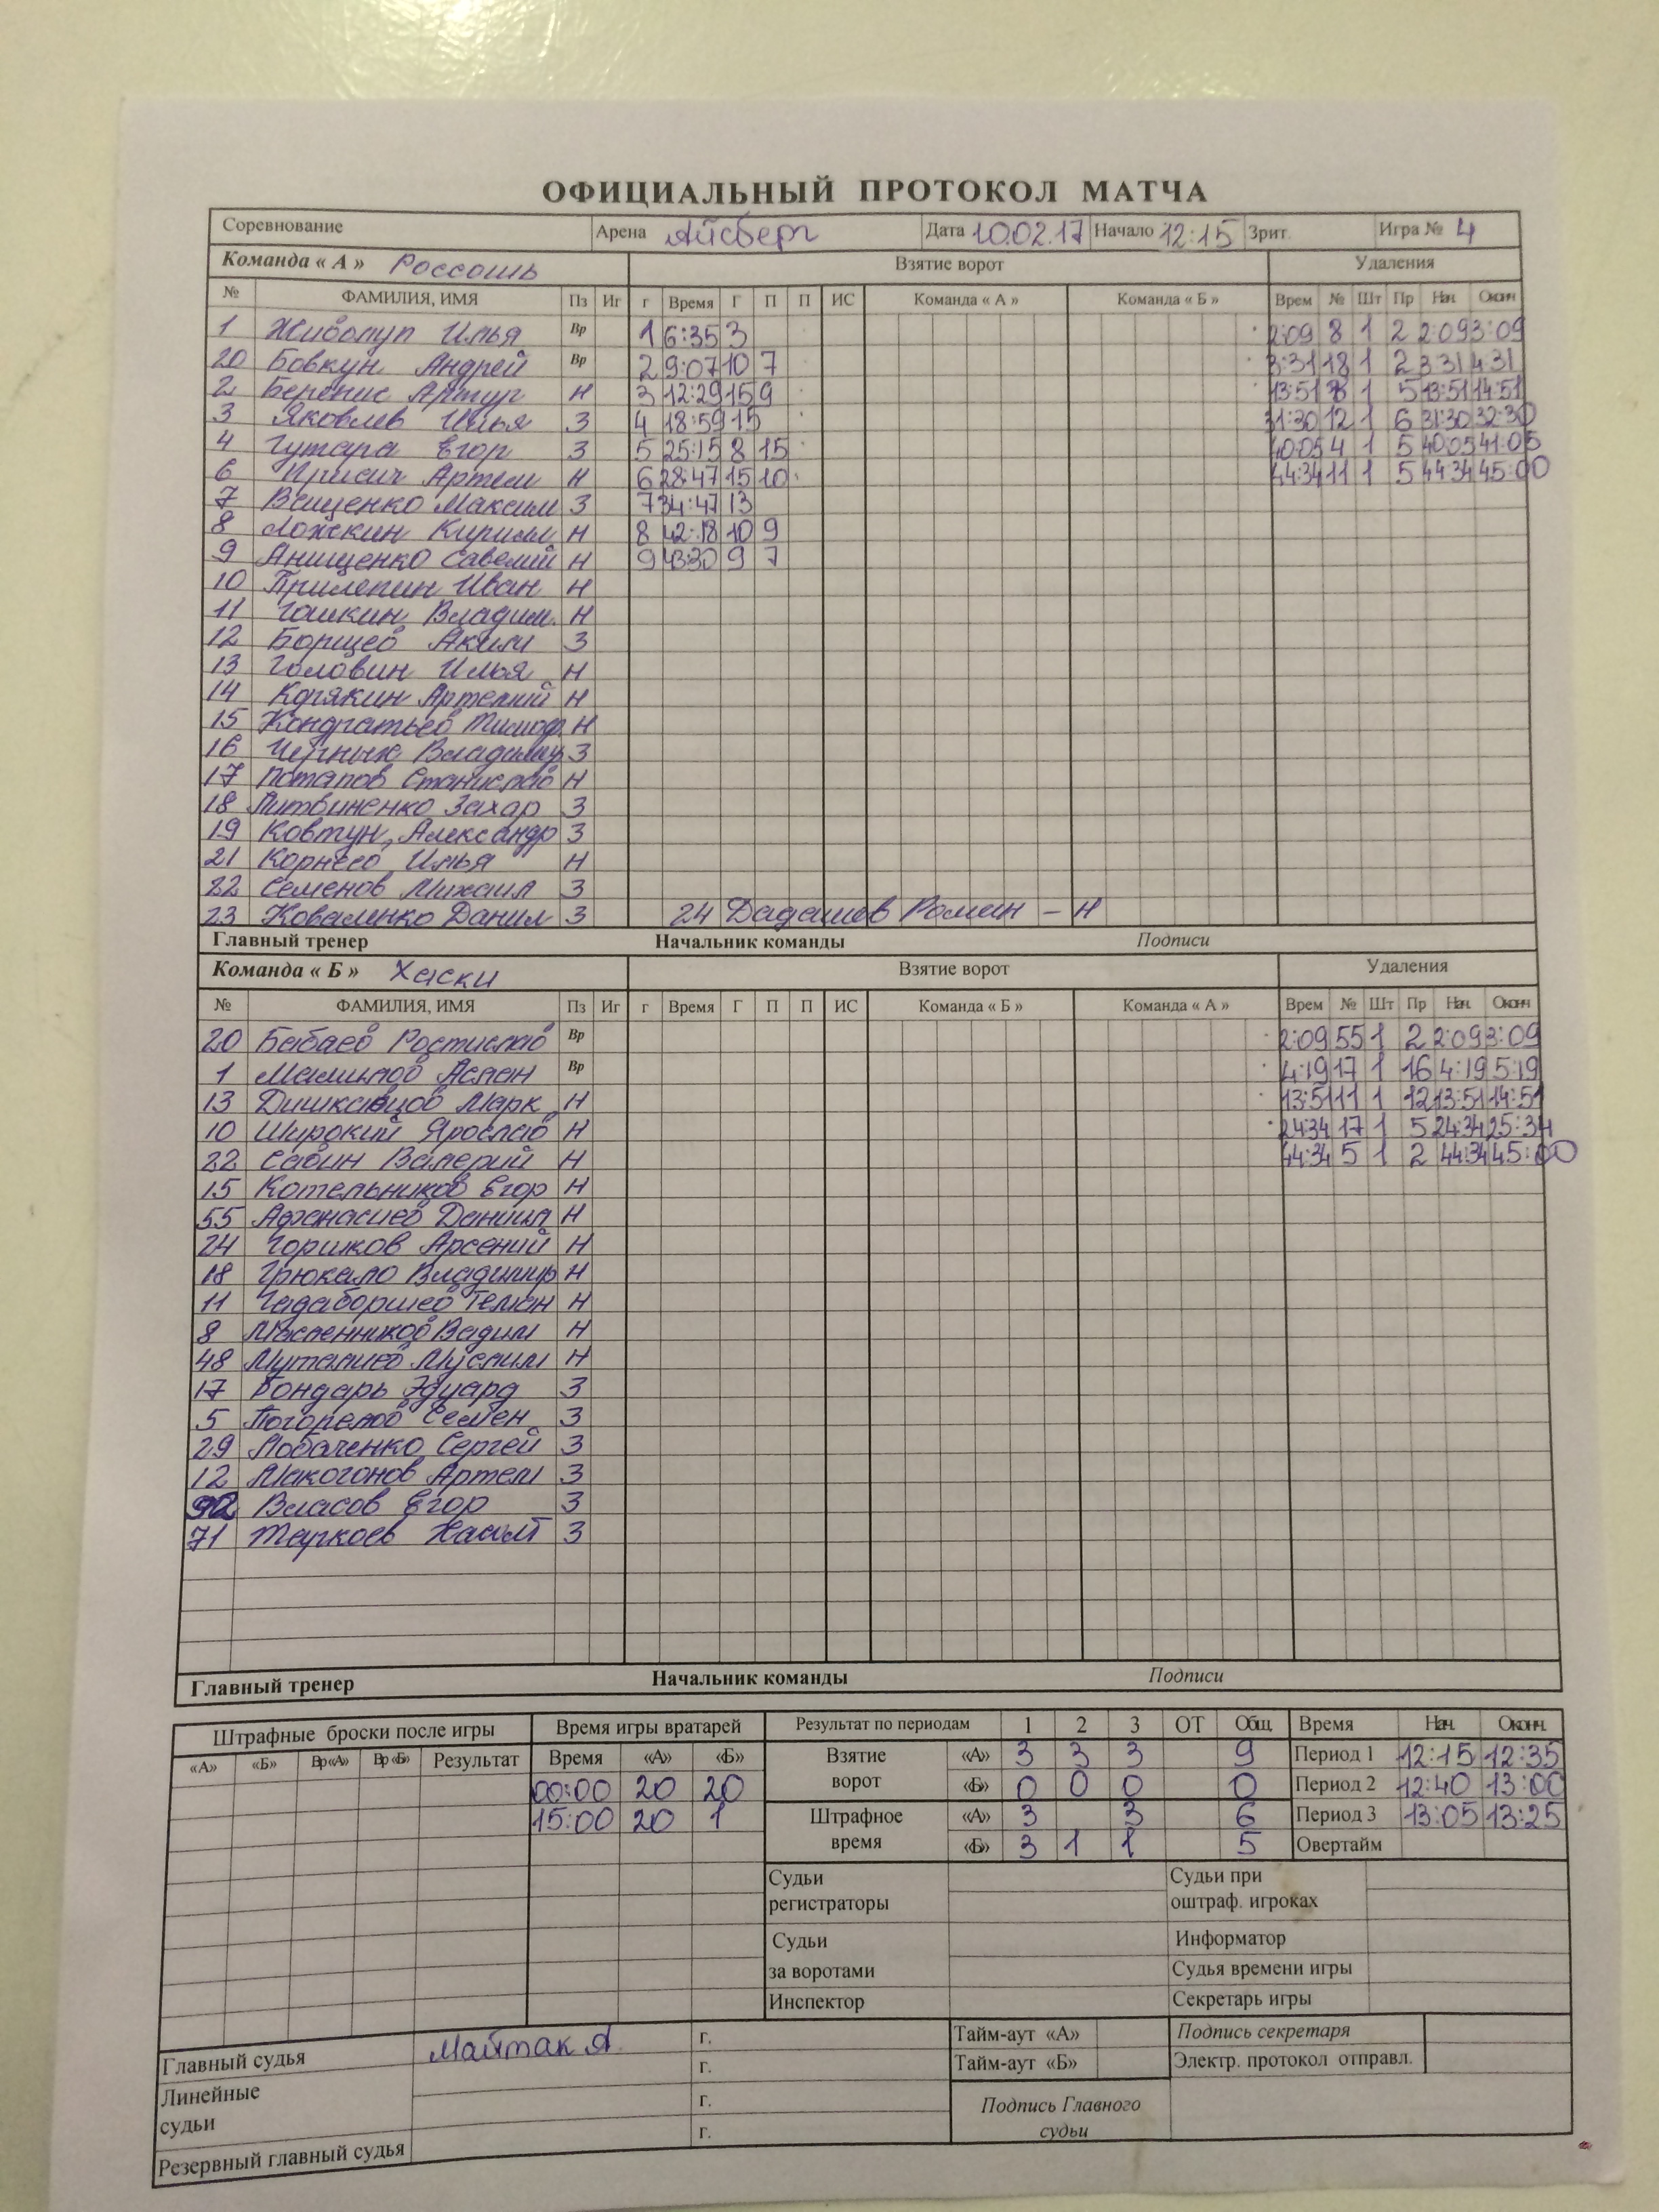 ОФИЦИАЛЬНЫЙ ПРОТОКОЛ МАТЧА
Соревнование Арена Айсберг Дата 10.02.17 Начало 12:15 Зрит. Игра № 4
Команда « А » Россошь Взятие ворот Удаления
№ ФАМИЛИЯ, ИМЯ Пз Иг г Время Г П П ИС Команда « А » Команда « Б » Врем № Шт Пр Нач. Оконч
1 Живолуп Илья Вр 1 6:35 3 2:09 8 1 2 2:09 3:09
20 Бовкун Андрей Вр 2 9:07 10 7 3:31 18 1 2 3:31 4:31
2 Артур Н 3 12:29 15 9 13:51 1 5 13:51 14:51
3 Яковлев Илья З 4 18:59 15 31:30 12 1 6 31:30 32:30
4 Гутара Егор З 5 25:15 8 15 40:05 4 1 5 40:05 41:05
6 Артем Н 6 28:47 15 10 44:34 11 1 5 44:34 45:00
7 Ващенко Максим З 7 34:47 13
8 Ложкин Кирилл Н 8 42:18 10 9
9 Анищенко Савелий Н 9 43:30 9 7
10 Прилепин Иван Н
11 Гашкин Владим. Н
12 Борщев Аким З
13 Головин Илья Н
14 Корякин Артемий Н
15 Кондратьев Тимоф. Н
16 Черных Владимир З
17 Потапов Станислав Н
18 Литвиненко Захар З
19 Ковтун Александр З
21 Корнеев Илья Н
22 Семенов Михаил З
23 Коваленко Данил З 24 Дадашов Роман – Н
Главный тренер Начальник команды Подписи
Команда « Б » Хаски Взятие ворот Удаления
№ ФАМИЛИЯ, ИМЯ Пз Иг г Время Г П П ИС Команда « Б » Команда « А » Врем № Шт Пр Нач. Оконч
20 Бабаев Ростислав Вр 2:09 55 1 2 2:09 3:09
1 Мамилов Аслан Вр 4:19 17 1 16 4:19 5:19
13 Дишкавцов Марк Н 13:51 11 1 12 13:51 14:51
10 Широкий Ярослав Н 24:34 17 1 5 24:34 25:34
22 Савин Валерий Н 44:34 5 1 2 44:34 45:00
15 Котельников Егор Н
55 Афанасиев Даниил Н
24 Горшков Арсений Н
18 Грюкало Владимир Н
11 Гадаборшев Темган Н
8 Масленников Вадим Н
48 Муталиев Муслим Н
17 Бондарь Эдуард З
5 Погорелов Семен З
29 Лобаченко Сергей З
12 Макогонов Артем З
92 Власов Егор З
71 Таркоев Хамит З
Главный тренер Начальник команды Подписи
Штрафные броски после игры Время игры вратарей Результат по периодам 1 2 3 ОТ Общ. Время Нач. Оконч.
«А» «Б» Вр«А» Вр«Б» Результат Время «А» «Б» Взятие ворот «А» 3 3 3 9 Период 1 12:15 12:35
00:00 20 20 «Б» 0 0 0 0 Период 2 12:40 13:00
15:00 20 1 Штрафное время «А» 3 3 6 Период 3 13:05 13:25
«Б» 3 1 1 5 Овертайм
Судьи регистраторы Судьи при оштраф. игроках
Судьи за воротами Информатор
Судья времени игры
Инспектор Секретарь игры
Главный судья Майтак А. г. Тайм-аут «А» Подпись секретаря
г. Тайм-аут «Б» Электр. протокол отправл.
Линейные судьи г. Подпись Главного судьи
Резервный главный судья г.